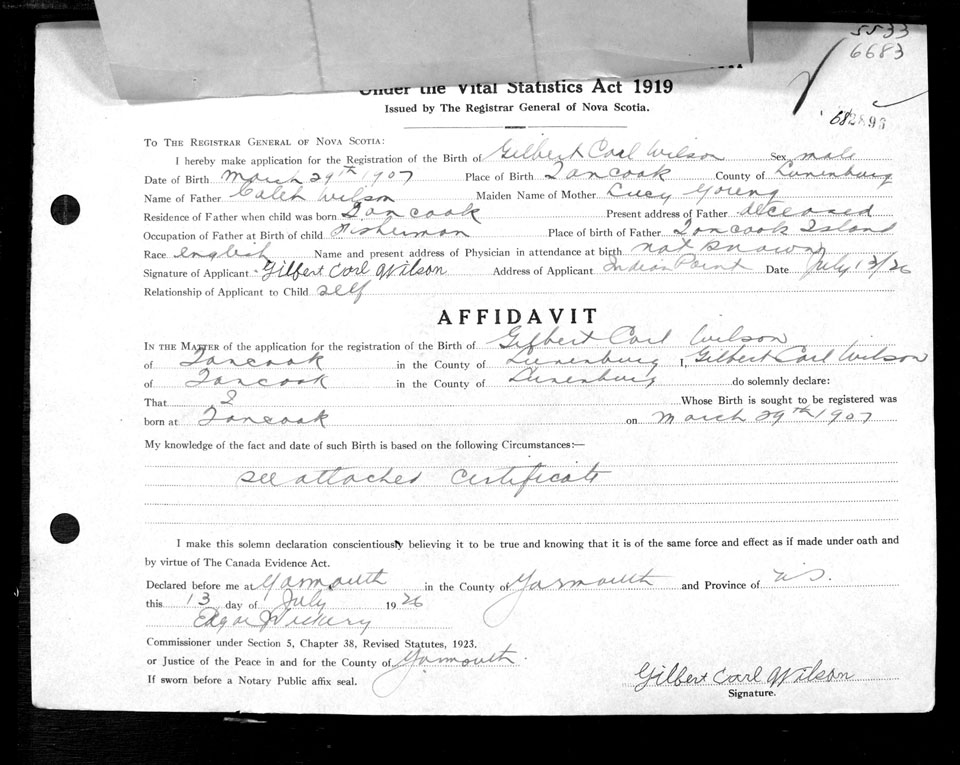 5533
6683
682893
Under the Vital Statistics Act 1919
Issued by The Registrar General of Nova Scotia.
TO THE REGISTRAR GENERAL OF NOVA SCOTIA:
I hereby make application for the Registration of the Birth of Gilbert Carl Wilson Sex male
Date of Birth March 29th 1907 Place of Birth Tancook County of Lunenburg
Name of Father Caleb Wilson Maiden Name of Mother Lucy Young
Residence of Father when child was born Tancook Present address of Father deceased
Occupation of Father at Birth of child Fisherman Place of birth of Father Tancook Island
Race english Name and present address of Physician in attendance at birth not known
Signature of Applicant Gilbert Carl Wilson Address of Applicant Indian Point Date July 13/26
Relationship of Applicant to Child self
AFFIDAVIT
IN THE MATTER of the application for the registration of the Birth of Gilbert Carl Wilson
of Tancook in the County of Lunenburg I, Gilbert Carl Wilson
of Tancook in the County of Lunenburg do solemnly declare:
That I Whose Birth is sought to be registered was
born at Tancook on March 29th 1907
My knowledge of the fact and date of such Birth is based on the following Circumstances:—
see attached certificate
I make this solemn declaration conscientiously believing it to be true and knowing that it is of the same force and effect as if made under oath and
by virtue of The Canada Evidence Act.
Declared before me at Yarmouth in the County of Yarmouth and Province of N.S.
this 13 day of July 1926
Edgar J Vickery
Commissioner under Section 5, Chapter 38, Revised Statutes, 1923.
or Justice of the Peace in and for the County of Yarmouth.
If sworn before a Notary Public affix seal.
Gilbert Carl Wilson
Signature.